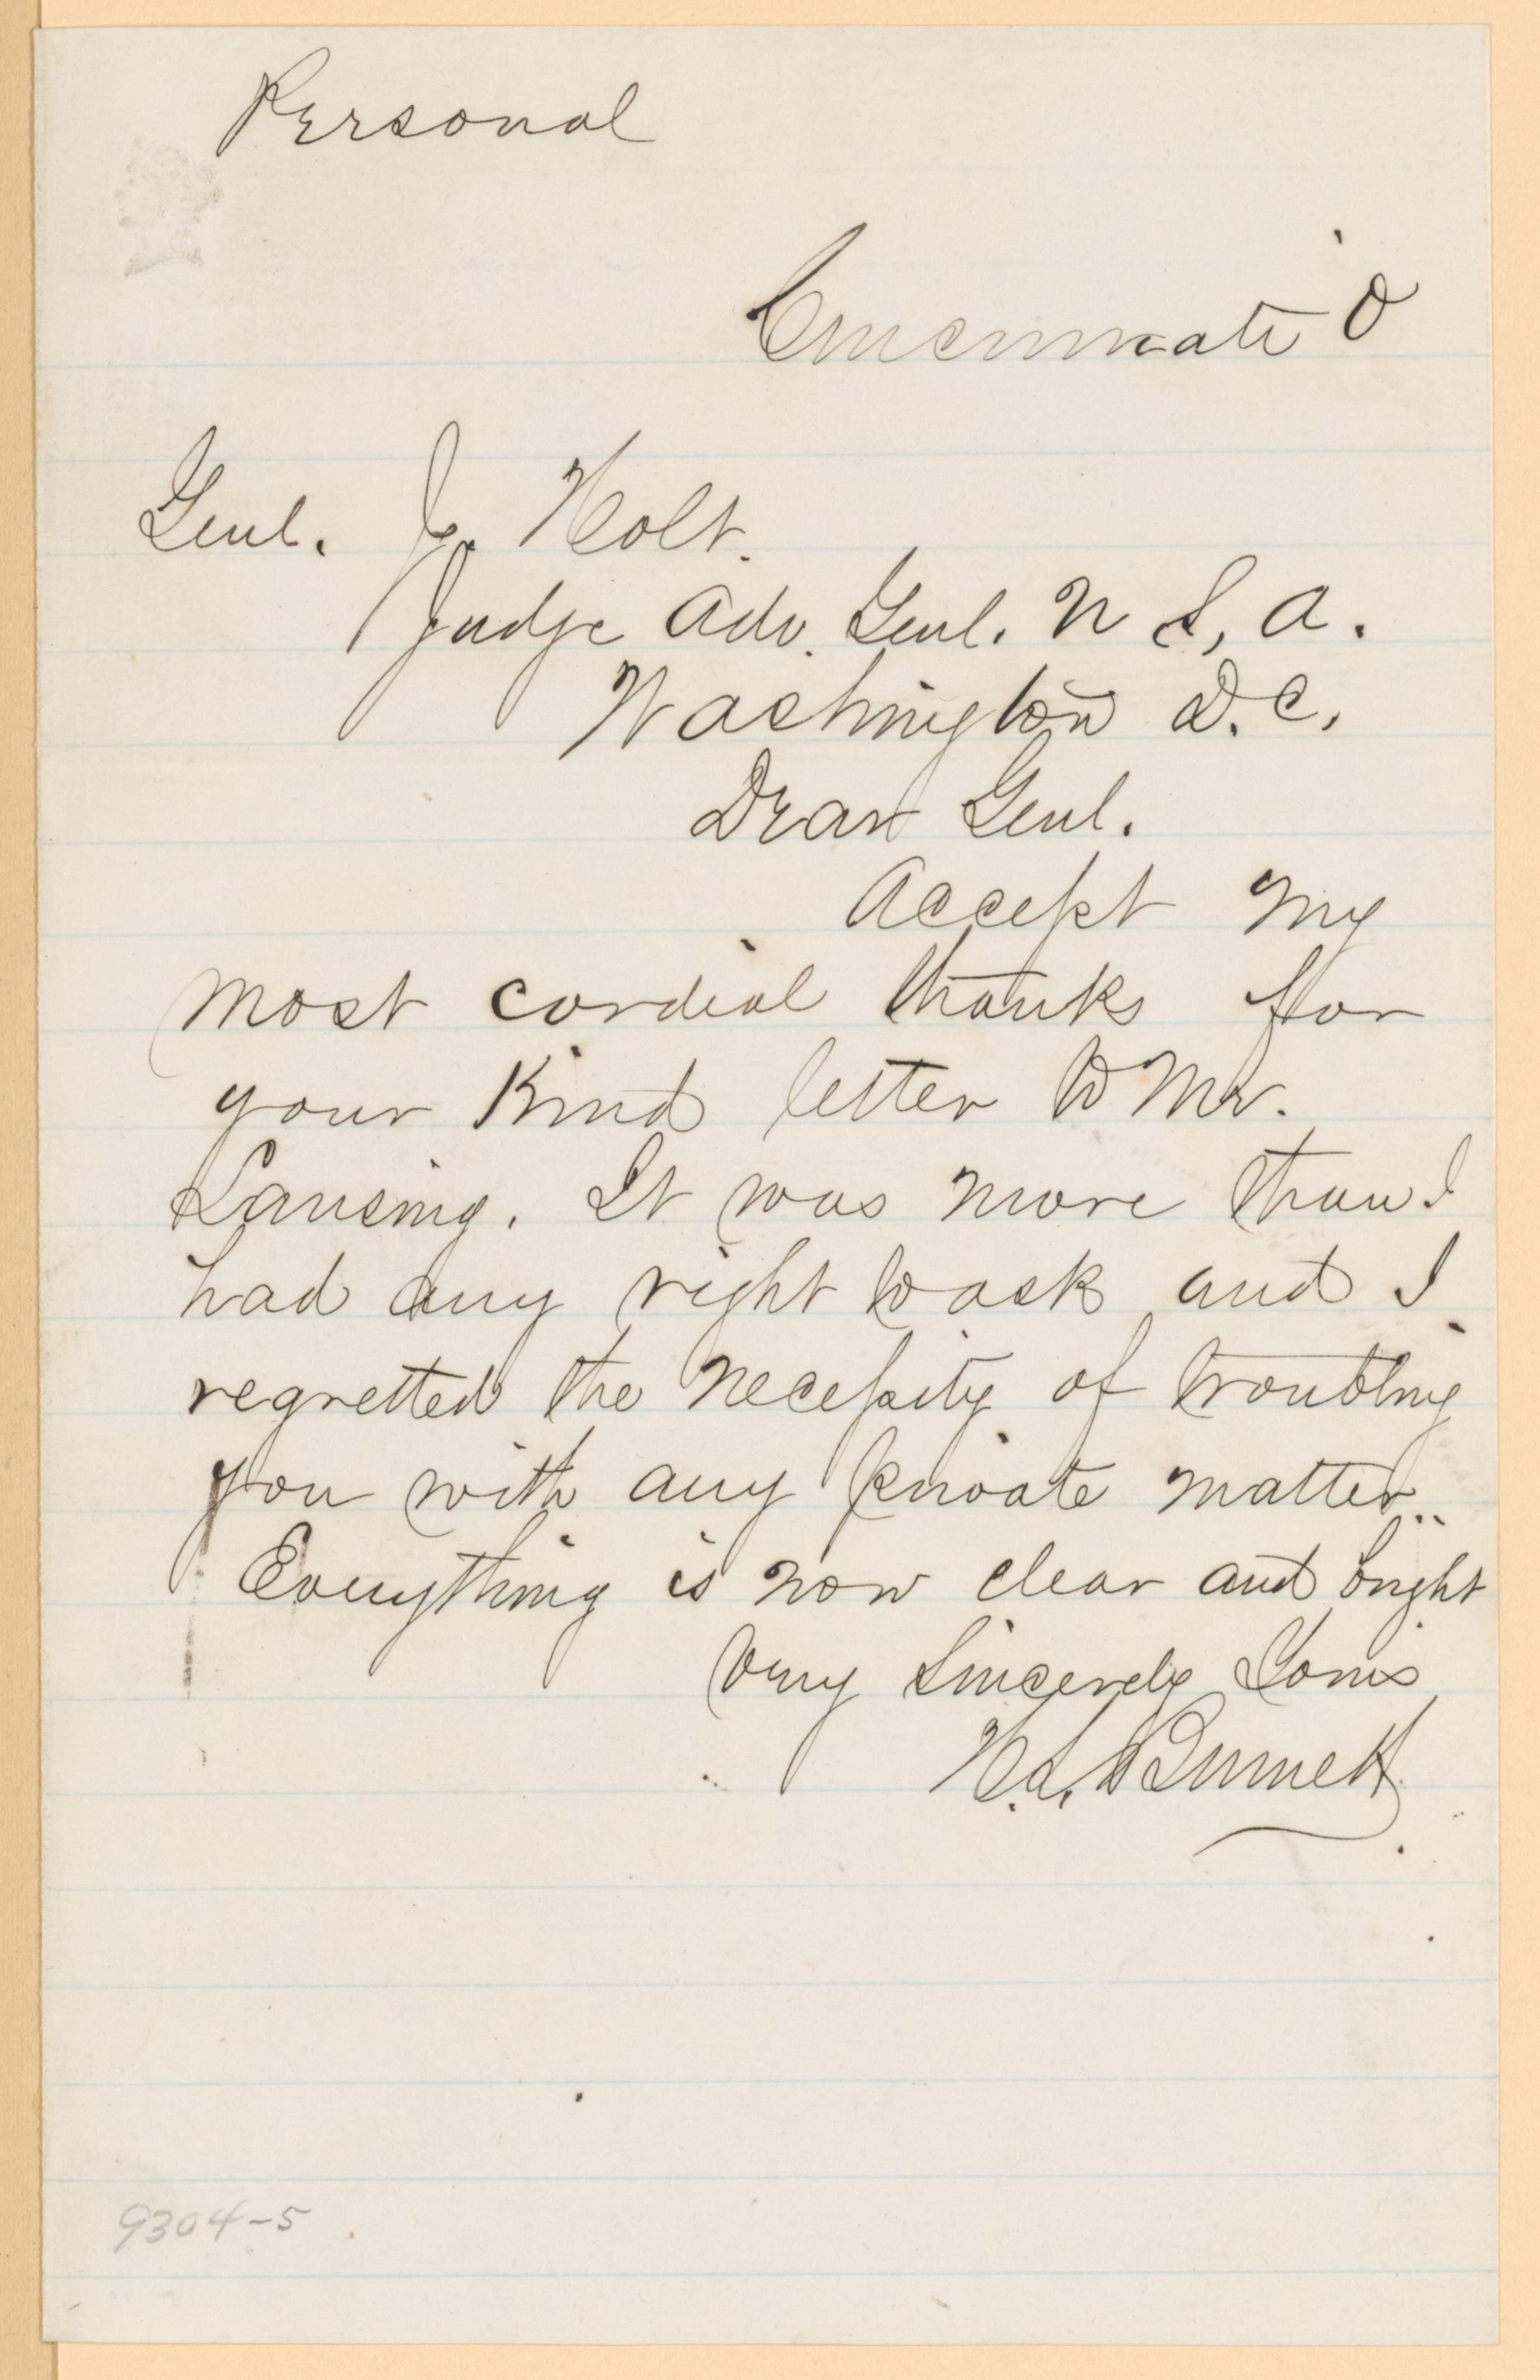 Personal
Cincinnati O
Genl. J. Holt.
Judge Adv. Genl. U S, A.
Washington D.C.
Dear Genl.
Accept my
most cordial thanks for
your kind letter to Mr.
Lansing. It was more than I
had any right to ask and I
regretted the necessity of troubling
you with any private matter.
Everything is now clear and bright
Very Sincerely Yours
H. L. Burnett
9304-5